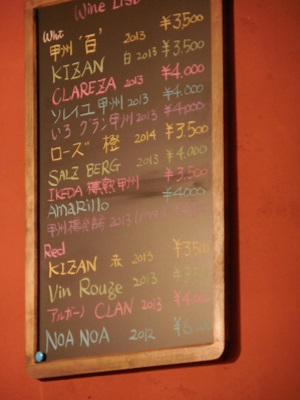 Wine List
甲州 '百' 2013 ¥3,500
KIZAN 白 2013 ¥3,500
CLAREZA 2013 ¥4,000
ソレイユ 甲州 2013 ¥4,000
いろ グラン甲州 2013 ¥4,000
ローズ 橙 2014 ¥3,500
SALZ BERG 2013 ¥4,000
IKEDA 樽甲州 ¥3,500
Amarillo ¥4000
甲州 2013
Red
KIZAN 赤 2013 ¥3,500
Vin Rouge 2013
アルガーノ CLAN 2013 ¥4,000
NOA NOA 2012